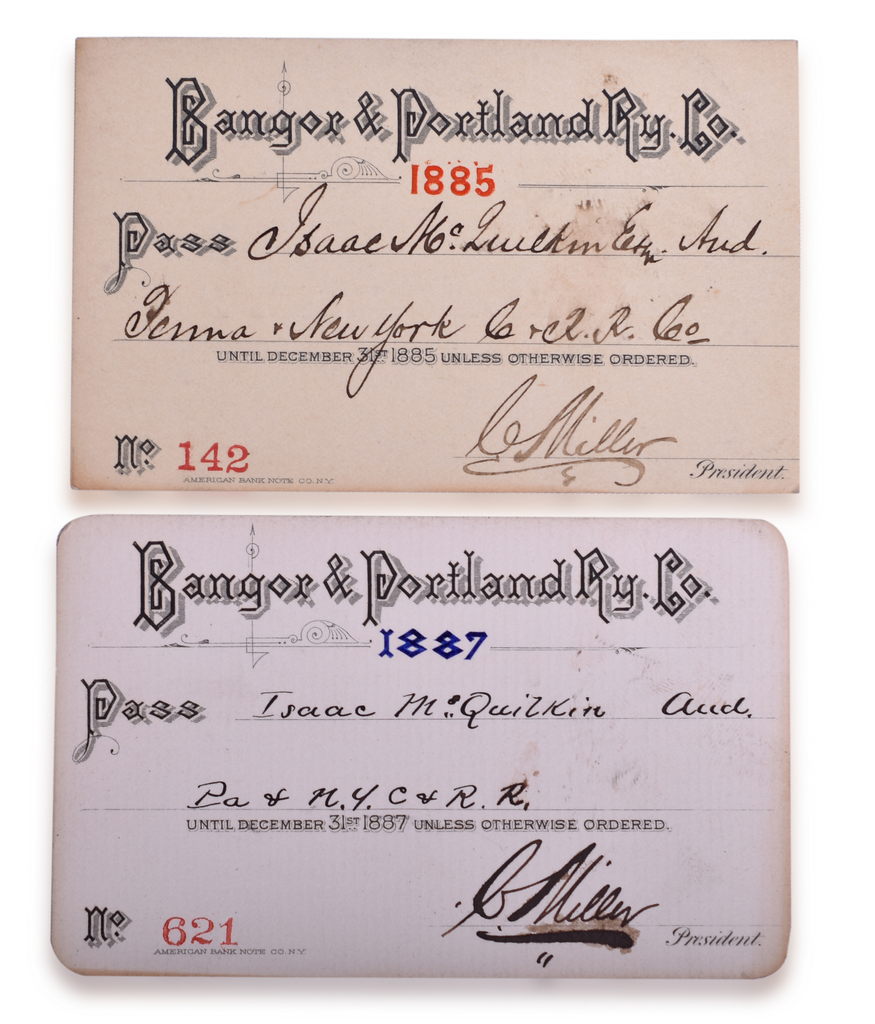 Bangor & Portland Ry. Co.
1885
Pass Isaac Mc.Quilkin Esq. Aud.
Penna & New York C & R. R. Co
UNTIL DECEMBER 31ST 1885 UNLESS OTHERWISE ORDERED.
C Miller
President.
No 142
AMERICAN BANK NOTE CO. N.Y.
Bangor & Portland Ry. Co.
1887
Pass Isaac Mc.Quilkin Aud.
Pa & N.Y. C & R. R.
UNTIL DECEMBER 31ST 1887 UNLESS OTHERWISE ORDERED.
C Miller
President.
No 621
AMERICAN BANK NOTE CO. N.Y.